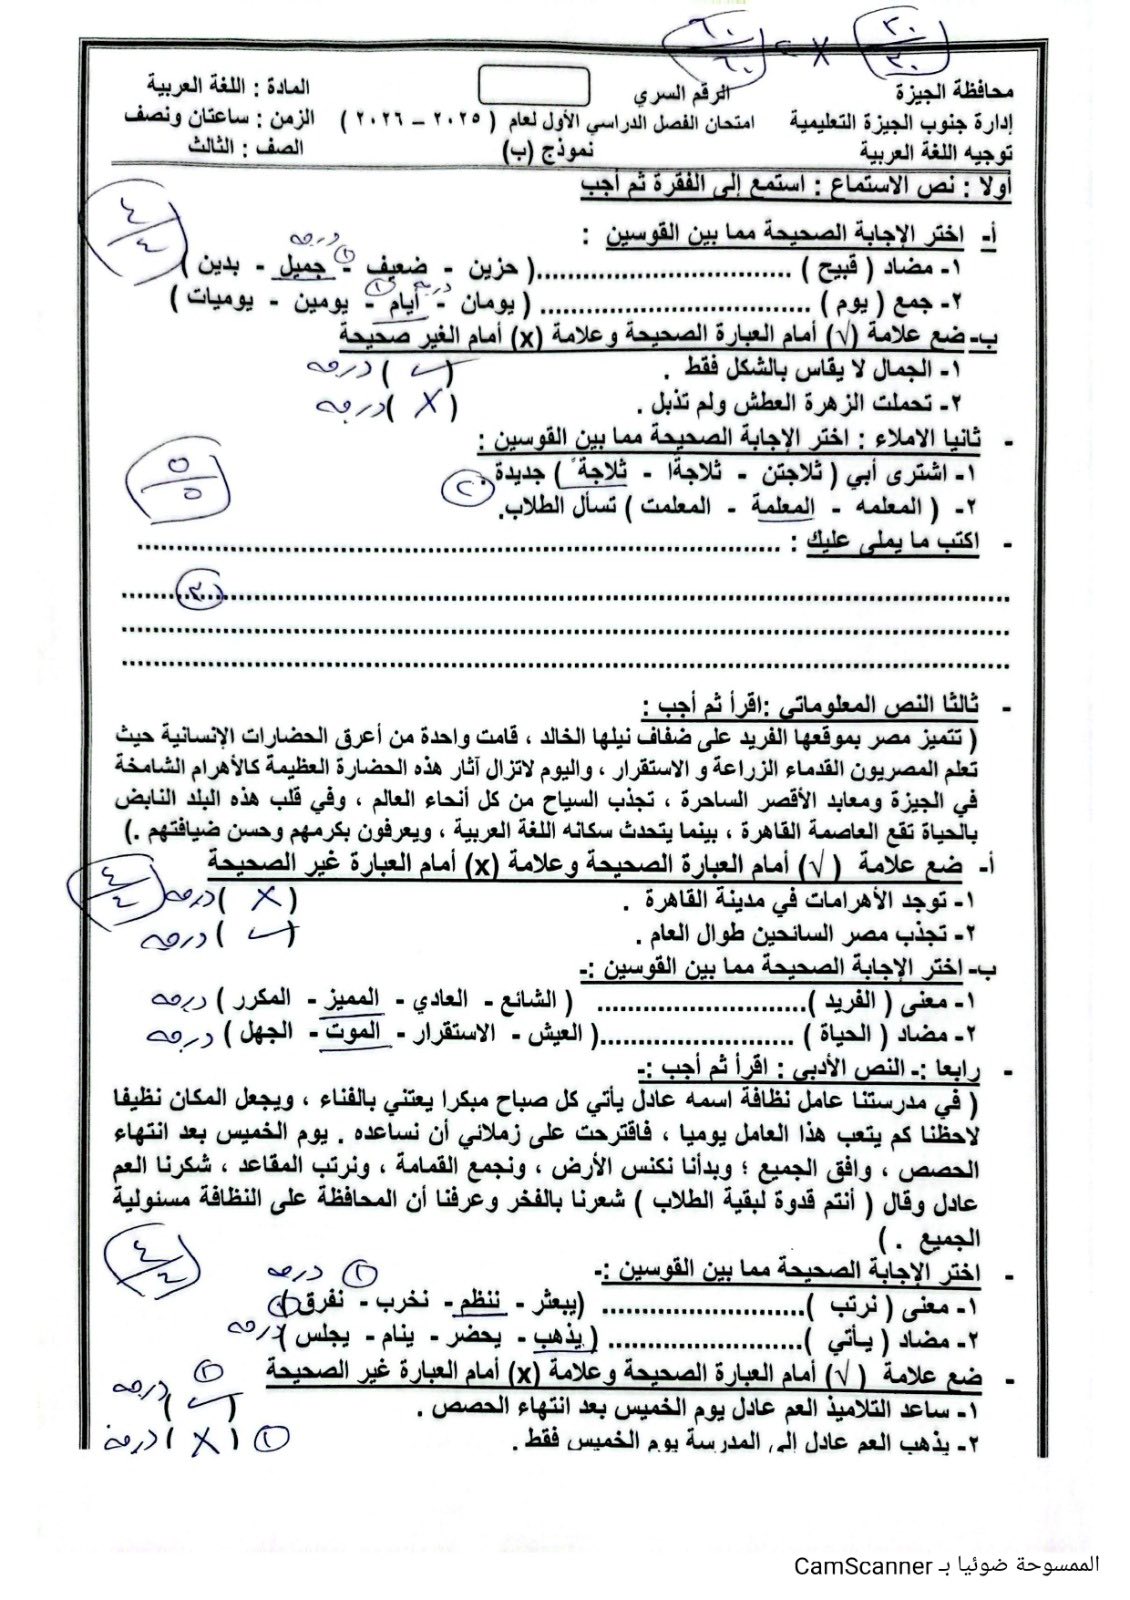 ٣٠/٣٠ × ٢ = ٦٠/٦٠
محافظة الجيزة الرقم السري المادة : اللغة العربية
إدارة جنوب الجيزة التعليمية امتحان الفصل الدراسي الأول لعام ( ٢٠٢٥ – ٢٠٢٦ ) الزمن : ساعتان ونصف
توجيه اللغة العربية نموذج (ب) الصف : الثالث
أولا : نص الاستماع : استمع إلى الفقرة ثم أجب
٤/٤
أ- اختر الإجابة الصحيحة مما بين القوسين :
درجه
١- مضاد ( قبيح ) ..............................( حزين - ضعيف - جميل - بدين ) ١
درجه
٢- جمع ( يوم ) .................................... ( يومان - أيام - يومين - يوميات ) ١
ب- ضع علامة (√) أمام العبارة الصحيحة وعلامة (x) أمام الغير صحيحة
١- الجمال لا يقاس بالشكل فقط . ( ✓ ) درجه
٢- تحملت الزهرة العطش ولم تذبل . ( X ) درجه
- ثانيا الاملاء : اختر الإجابة الصحيحة مما بين القوسين :
٥/٥
١- اشترى أبي ( ثلاجتن - ثلاجةا - ثلاجةً ) جديدة . ٢
٢- ( المعلمه - المعلمة - المعلمت ) تسأل الطلاب.
- اكتب ما يملى عليك : ....................................................................................
.......................................................................................................... ٣
..........................................................................................................
..........................................................................................................
- ثالثا النص المعلوماتي :اقرأ ثم أجب :
( تتميز مصر بموقعها الفريد على ضفاف نيلها الخالد ، قامت واحدة من أعرق الحضارات الإنسانية حيث
تعلم المصريون القدماء الزراعة و الاستقرار ، واليوم لاتزال آثار هذه الحضارة العظيمة كالأهرام الشامخة
في الجيزة ومعابد الأقصر الساحرة ، تجذب السياح من كل أنحاء العالم ، وفي قلب هذه البلد النابض
بالحياة تقع العاصمة القاهرة ، بينما يتحدث سكانه اللغة العربية ، ويعرفون بكرمهم وحسن ضيافتهم .)
أ- ضع علامة ( √) أمام العبارة الصحيحة وعلامة (x) أمام العبارة غير الصحيحة
٤/٤
١- توجد الأهرامات في مدينة القاهرة . ( X ) درجه
٢- تجذب مصر السائحين طوال العام . ( ✓ ) درجه
ب- اختر الإجابة الصحيحة مما بين القوسين :-
١- معنى ( الفريد )........................... ( الشائع - العادي - المميز - المكرر ) درجه
٢- مضاد ( الحياة ) .........................( العيش - الاستقرار - الموت - الجهل ) درجه
- رابعا :- النص الأدبي : اقرأ ثم أجب :-
( في مدرستنا عامل نظافة اسمه عادل يأتي كل صباح مبكرا يعتني بالفناء ، ويجعل المكان نظيفا
لاحظنا كم يتعب هذا العامل يوميا ، فاقترحت على زملائي أن نساعده . يوم الخميس بعد انتهاء
الحصص ، وافق الجميع ؛ وبدأنا نكنس الأرض ، ونجمع القمامة ، ونرتب المقاعد ، شكرنا العم
عادل وقال ( أنتم قدوة لبقية الطلاب ) شعرنا بالفخر وعرفنا أن المحافظة على النظافة مسئولية
الجميع . )
٤/٤
- اختر الإجابة الصحيحة مما بين القوسين :-
١ درجه
١- معنى ( نرتب )......................... (يبعثر - ننظم - نخرب - نفرق ) ١
٢- مضاد ( يأتي )......................... ( يذهب - يحضر - ينام - يجلس ) درجه
- ضع علامة ( √) أمام العبارة الصحيحة وعلامة (x) أمام العبارة غير الصحيحة
١- ساعد التلاميذ العم عادل يوم الخميس بعد انتهاء الحصص . ( ✓ ) ١ درجه
٢- يذهب العم عادل إلى المدرسة يوم الخميس فقط . ١ ( X ) درجه
الممسوحة ضوئيا بـ CamScanner